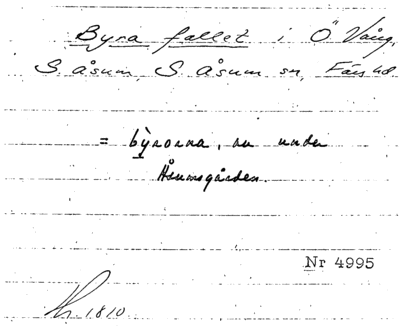 Byra fallet i Ö Vång,
S. åsum, S. åsum sn, Färs hd
= býrorna, nu under
Åsumsgården.
Nr 4995
1810